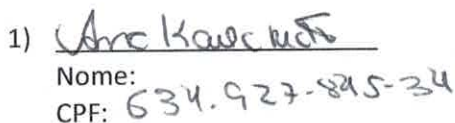 1)
Nome:
CPF: 634.927-845-34